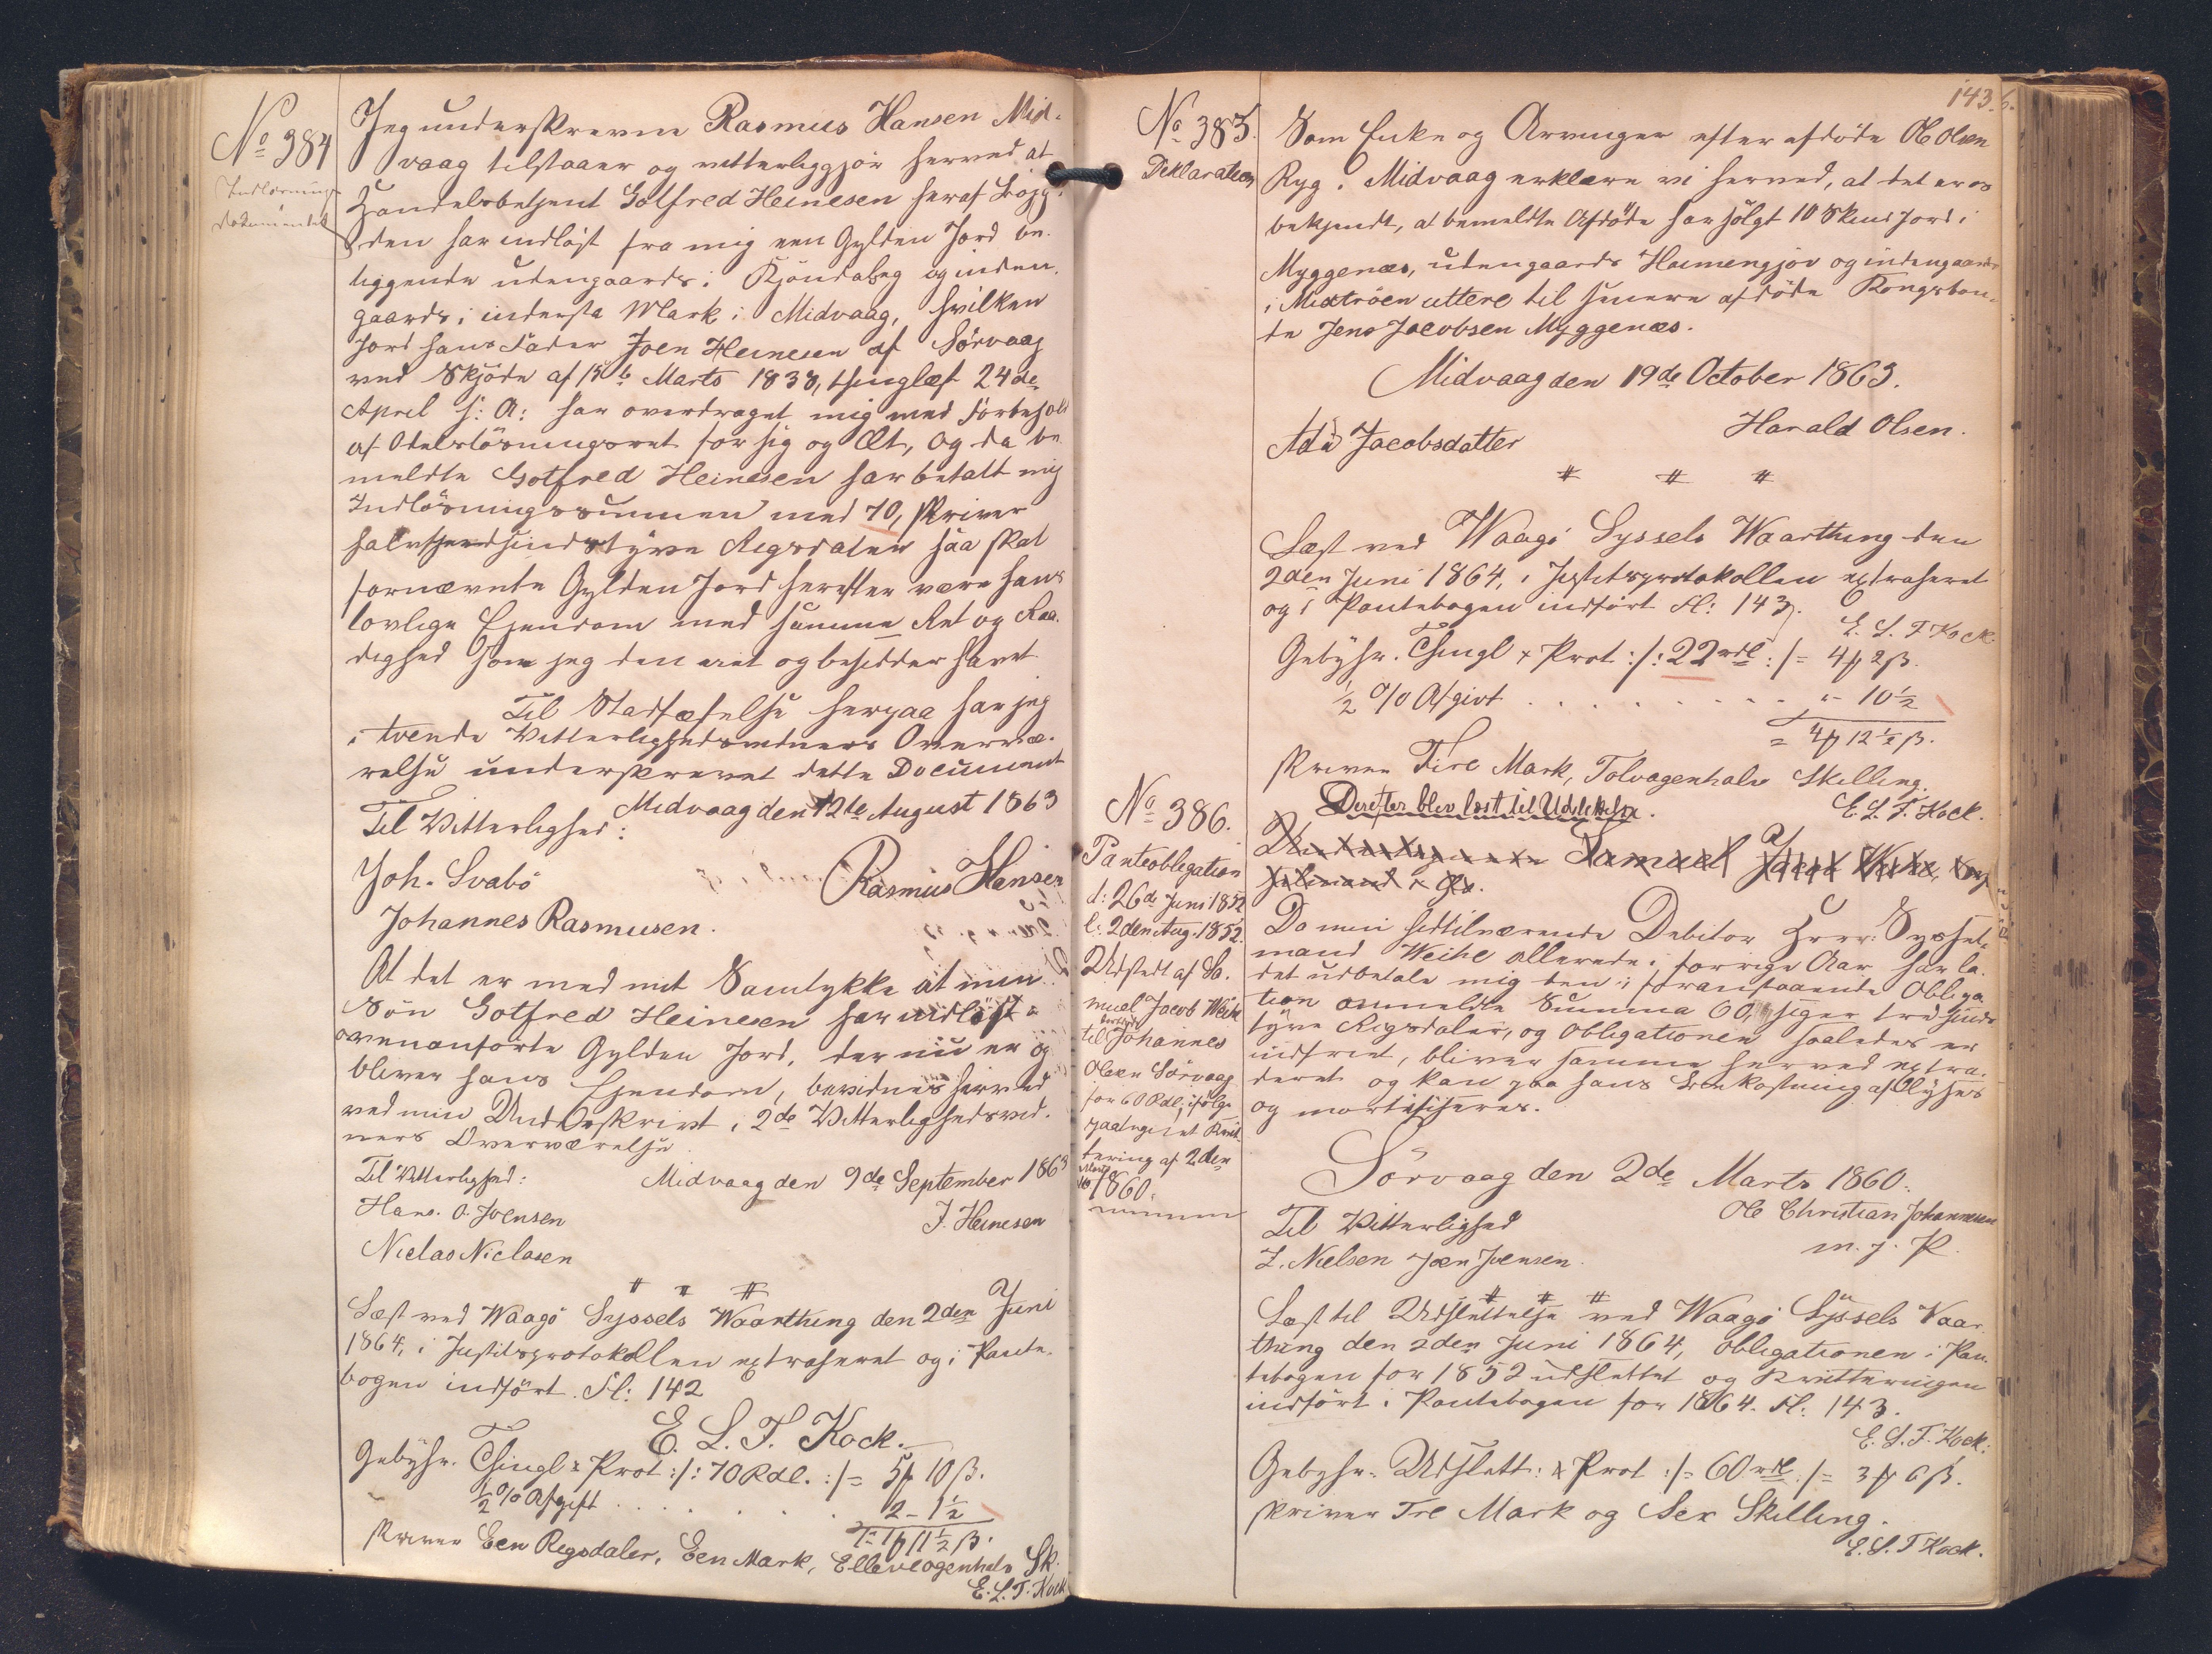 No 384
Indløsnings
Dokument
Jeg underskrevne Rasmus Hansen Mid-
vaag tilstaaer og vitterliggjør herved, at
Handelsbetjent Gotfred Heinesen heraf Bøjg-
den har indløst fra mig een Gylden Jord be-
liggende udengaards i Kjøndaleg og inden-
gaards i inderste Mark i Midvaag, hvilken
Jord hans Fader Joen Heinesen af Sörvaag
ved Skjöde af 15de Marts 1838, thinglæst 24de
April s: A: har overdraget mig med Forbehold
af Odelsløsningsret for sig og Æt, og da be-
meldte Gotfred Heinesen har betalt mig
Indlösningssummen med 70, skriver
halvfjerdsindstyve Rigsdaler saa skal
fornævnte Gylden Jord herefter være hans
lovlige Ejendom med samme Ret og Raa-
dighed som jeg den eiet og besiddet havet
Til Stadfæstelse herpaa har jeg
i tvende Vitterlighedsvidners Overvæ-
relse underskrevet dette Document
Midvaag den 12te August 1863
Til Vitterlighed:
Joh. Svabö
Rasmus Hansen
Johannes Rasmusen.
At det er med mit Samtykke at min
Sön Gotfred Heinesen har indløst
ovenanførte Gylden Jord, der nu er og
bliver hans Ejendom, bevidnes herved
ved min Underskrivt i 2de Vitterlighedsvid-
ners Overværelse
Til Vitterlighed:
Midvaag den 9de September 1863
Hans. O. Joensen
J. Heinesen
Niclas Niclasen
# # #
Læst ved Waagö Syssels Waarthing den 2den Juni
1864, i Justitsprotokollen extraheret og i Pante-
bogen indført. Fl: 142
E. L. T. Kock.
Gebyhr. Thingl & Prot :/: 70 Rdl. :/= 5 ₥ 10 β.
½ % Afgift . . . . . 2 - 1½
= 1 - 1 ₥ 11½ β.
skriver Een Rigsdaler, Een Mark, Elleveogenhalv Sk.
E. L. T. Kock
143.
No 385.
Deklaration
Som Enke og Arvinger efter afdöde Ole Olsen
Ryg i Midvaag erklære vi herved, at det er os
bekjendt, at bemeldte Afdöde har sölgt 10 Skind Jord i
Myggenæs, udengaards Heimengjov og indengaards
i Midtröen uttere til senere afdöde Kongsbon-
de Jens Jacobsen Myggenæs.
Midvaag den 19de October 1863.
Harald Olsen.
Ada Jacobsdatter
# # #
Læst ved Waagö Syssels Waarthing den
2den Juni 1864, i Justitsprotokollen extraheret
og i Pantebogen indfört Fl: 143.
E. L. T Kock.
Gebyhr. Thingl & Prot :/: 22 rdl :/= 4 ₥ 2 β.
½ % Afgivt . . . . . . . " - 10½
= 4 ₥ 12½ β.
skriver Fire Mark, Tolvogenhalv Skilling.
E. L. T. Kock.
Derefter blev læst til Udslettelse.
No 386.
Panteobligation
d: 26de Juni 1852
l: 2den Aug. 1852.
Udstedt af Sa-
muel Jacob Weihe
til Johannes
Olsen Sörvaag
for 60 Rdl, ifølge
paategnet Kvit-
tering af 2den
Marts
1860.
Samuel Jacob Weihe
Da min hidtilværende Debitor Herr: Syssel-
mand Weihe allerede i forrige Aar har la-
det udbetale mig den i foranstaaende Obliga-
tion anmeldte Summa 60, siger tredsinds-
tyve Rigsdaler, og Obligationen saaledes er
indfriet, bliver samme herved extra-
deret og kan paa hans Bekostning aflyses
og mortificeres.
Sörvaag den 2de Marts 1860.
Til Vitterlighed
Ole Christian Johannesen
Z. Nielsen Joen Joensen.
m. f. P.
# # #
Læst til Udslettelse ved Waagö Syssels Vaar-
thing den 2den Juni 1864, Obligationen i Pan-
tebogen for 1852 udslettet og Kvitteringen
indfört i Pantebogen for 1864. Fl: 143.
E. L. T. Kock.
Gebyhr. Udslett: & Prot :/= 60 rdl :/= 3 ₥ 6 β.
skriver Tre Mark og Sex Skilling.
E. L. T Kock.